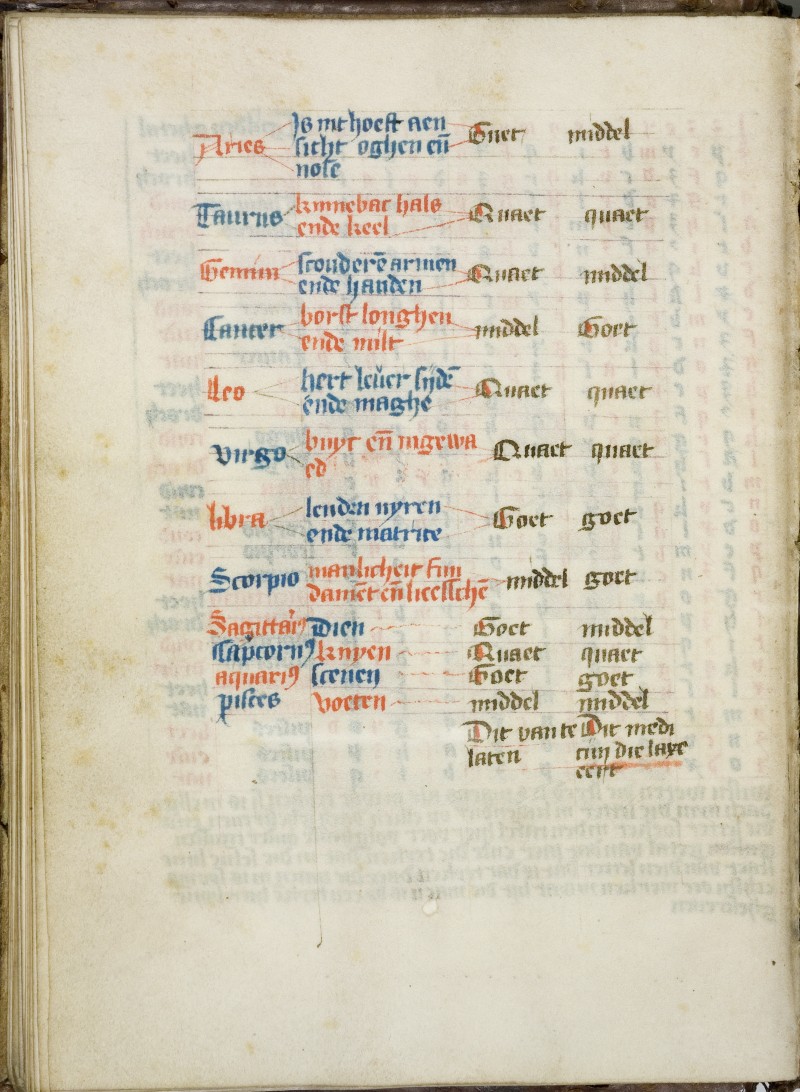 Is int hoeft aen
Aries sicht oghen en̄ Guet middel
nose
Taurus kinnebac hals Quaet quaet
ende keel
Gemini scouderē armen Quaet middel
ende handen
Cancer borst longhen middel Goet
ende milt
Leo hert lever sijdē Quaet quaet
ende maghe
Virgo buyc en̄ ingewa Quaet quaet
ed
libra lenden nyren Goet goet
ende matrice
Scorpio manlicheit fun middel goet
damēt en̄ heesschē
Sagittariꝰ Dien Goet middel
Capcornꝰ knyen Quaet quaet
aquariꝰ scenen Goet goet
pisces voeten middel middel
Dit van te Dit medi
laten cinj die laxe
eert